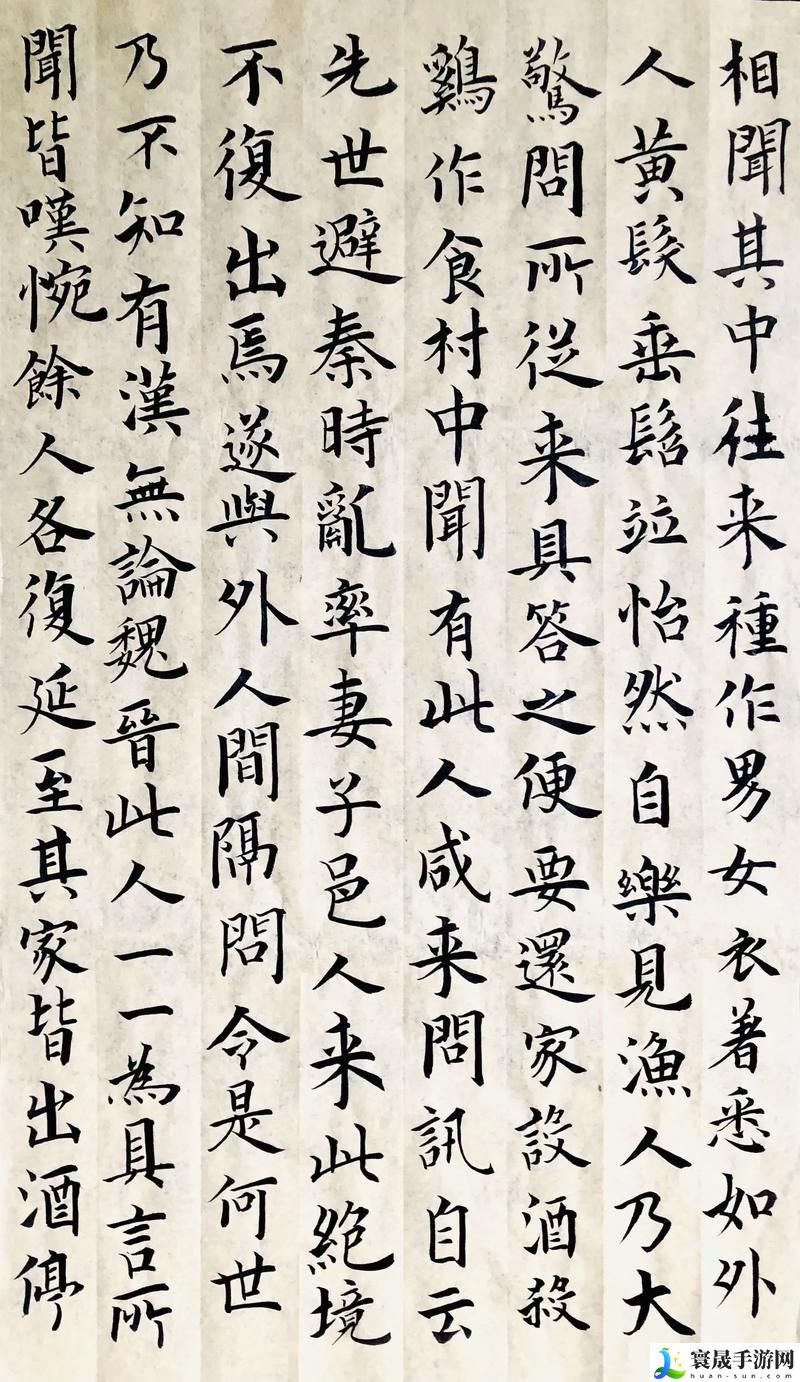 相聞其中往来種作男女衣著悉如外
人黄髮垂髫竝怡然自樂見漁人乃大
驚問所従来具答之便要還家設酒殺
鷄作食村中聞有此人咸来問訊自云
先世避秦時亂率妻子邑人来此絶境
不復出焉遂與外人間隔問令是何世
乃不知有漢無論魏晉此人一一為具言所
聞皆嘆惋餘人各復延至其家皆出酒停
寰晟手游网
huan-sun.com